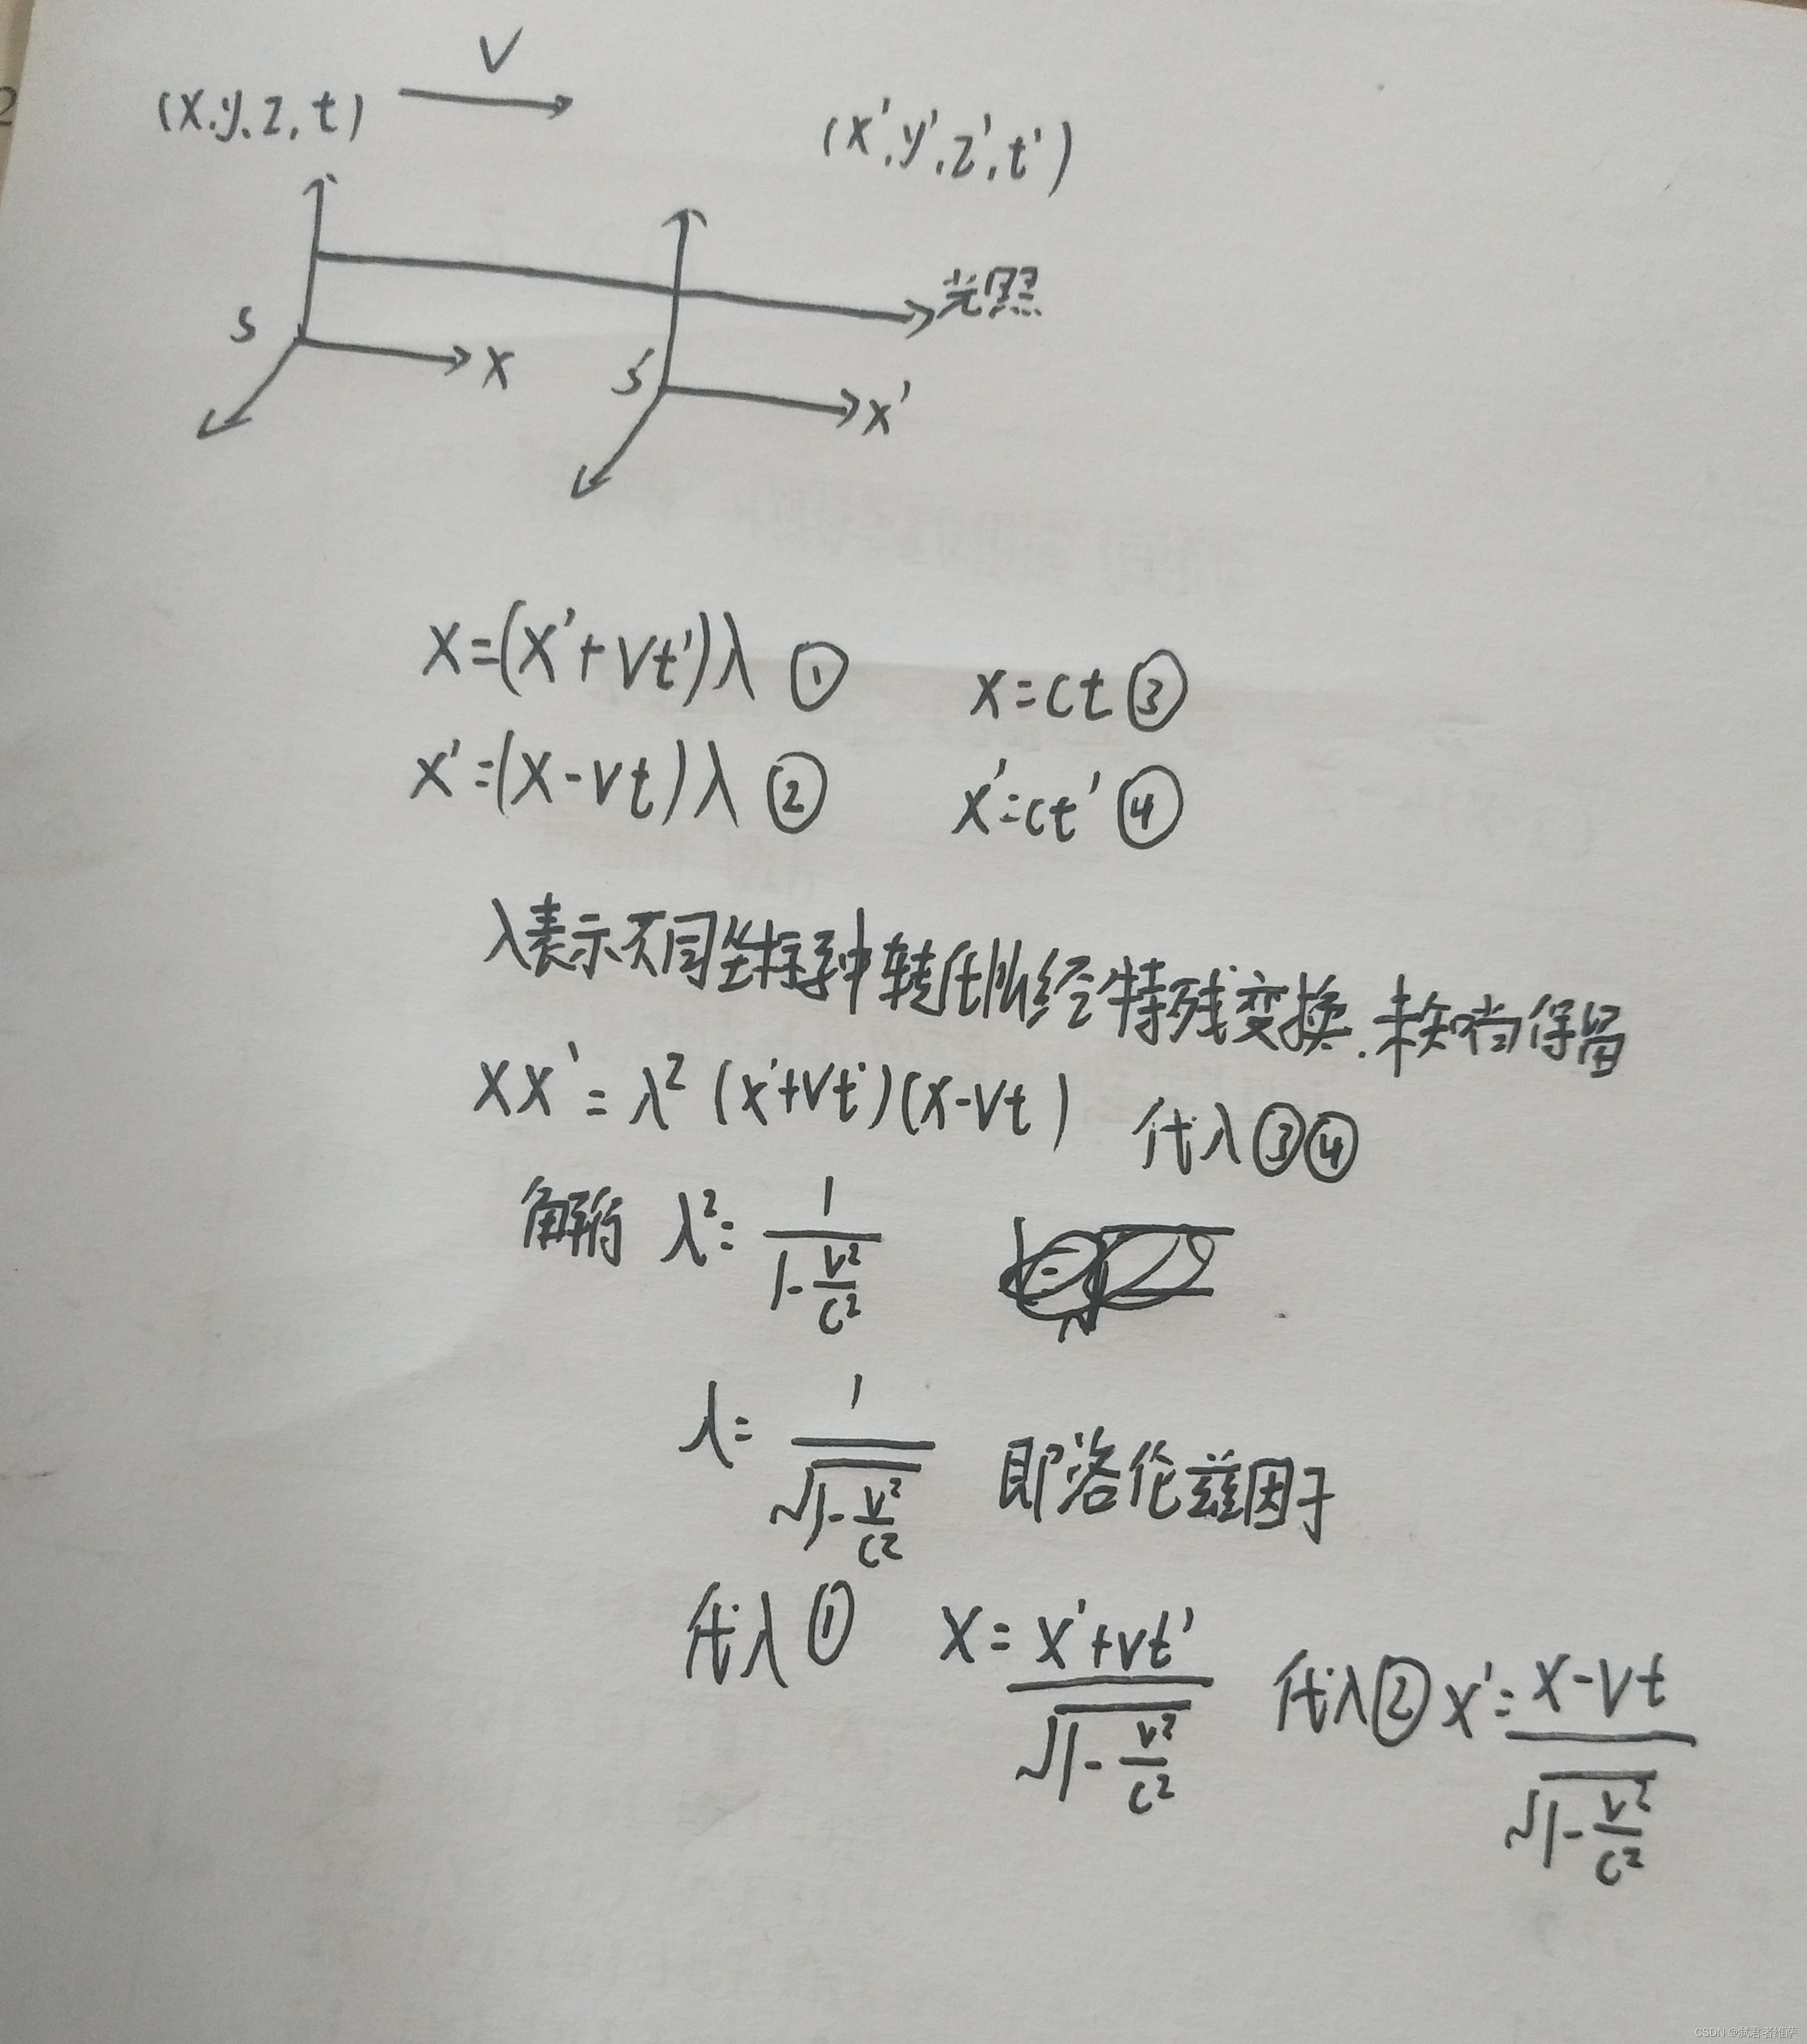 V
(x.y.z.t)
(x'.y'.z'.t')
光照
S
x
S'
x'
x=(x'+vt')λ ① x=ct ③
x'=(x-vt)λ ② x'=ct' ④
λ表示不同坐标中转化必经特殊变换.未知当保留
xx'=λ²(x'+vt')(x-vt) 代入③④
解得 λ²=1/(1-v²/c²)
λ=1/√(1-v²/c²) 即洛伦兹因子
代入① x=(x'+vt')/√(1-v²/c²) 代入② x'=(x-vt)/√(1-v²/c²)
CSDN @弑君者维萨